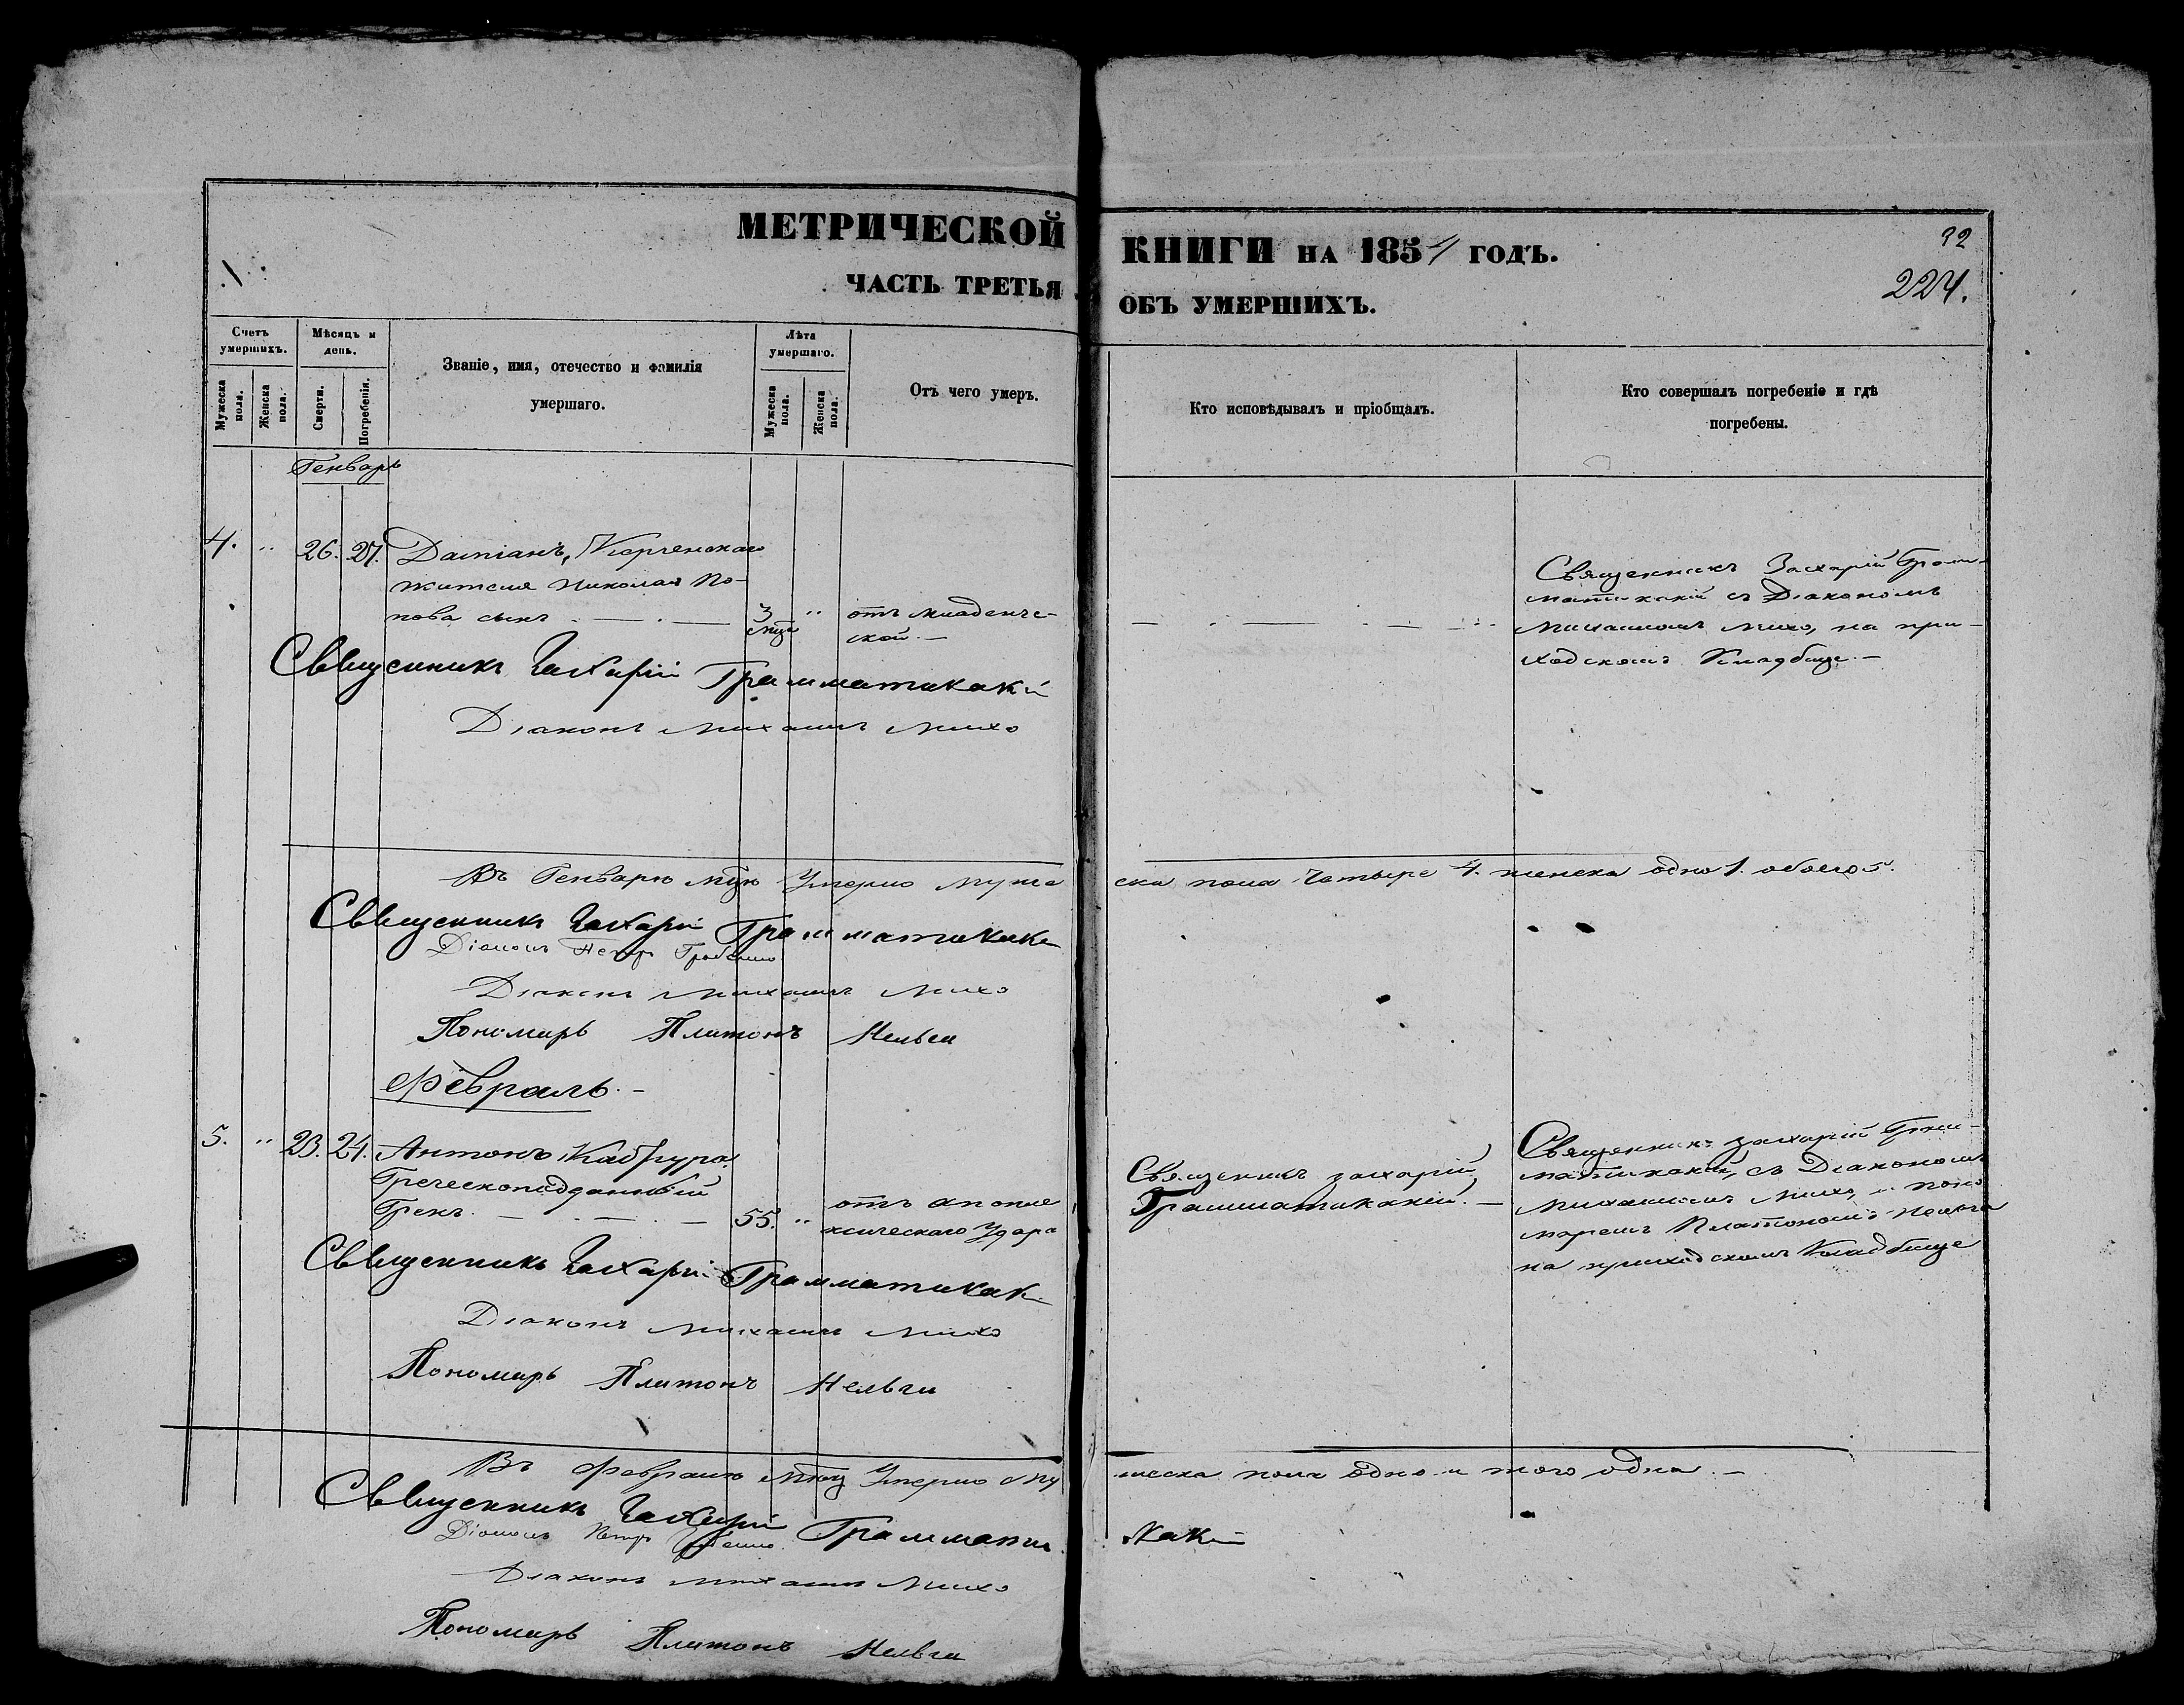 МЕТРИЧЕСКОЙ КНИГИ НА 1851 ГОДЪ.
32
ЧАСТЬ ТРЕТЬЯ ОБЪ УМЕРШИХЪ.
224.
Счетъ умершихъ.
Мужеска пола.
Женска пола.
Мѣсяцъ и день.
Смерти.
Погребенія.
Званіе, имя, отечество и фамилія умершаго.
Лѣта умершаго.
Мужеска пола.
Женска пола.
Отъ чего умеръ.
Кто исповѣдывалъ и пріобщалъ.
Кто совершалъ погребеніе и гдѣ погребены.
Генварь
4. " 26. 27. Даміанъ, Керченскаго
жителя Николая По-
пова сынъ 3 " отъ младенче-
ской.
Священникъ Захарій Грам-
матикакій съ Діакономъ
Михаиломъ Михо, на при-
ходскомъ Кладбище.
Священникъ Захарій Грамматикакій
Діаконъ Михаилъ Михо
Въ Генварѣ Умерло мужеска пола четыре 4. женска одно 1. обоего 5.
Священникъ Захарій Грамматикаки
Діаконъ Михаилъ Михо
Пономарь Платонъ Нельги
Февраль.
5. " 23. 24. Антонъ
Греческоподданный
Грекъ. 55. " отъ апопле
ксическаго Удара
Священикъ захарій
Грамматикакій.
Священникъ захарій Грам-
матикакій, съ Діакономъ
Михаиломъ Михо, и поно
маремъ Платономъ Нельги
на приходскомъ Кладбище
Священникъ Захарій Грамматикаки
Діаконъ Михаилъ Михо
Пономарь Платонъ Нельги
Въ Февралѣ Умерло Му жеска пола одно и того одна.
Священникъ Захарій Граммати какій
Діаконъ Михаилъ Михо
Пономарь Платонъ Нельги